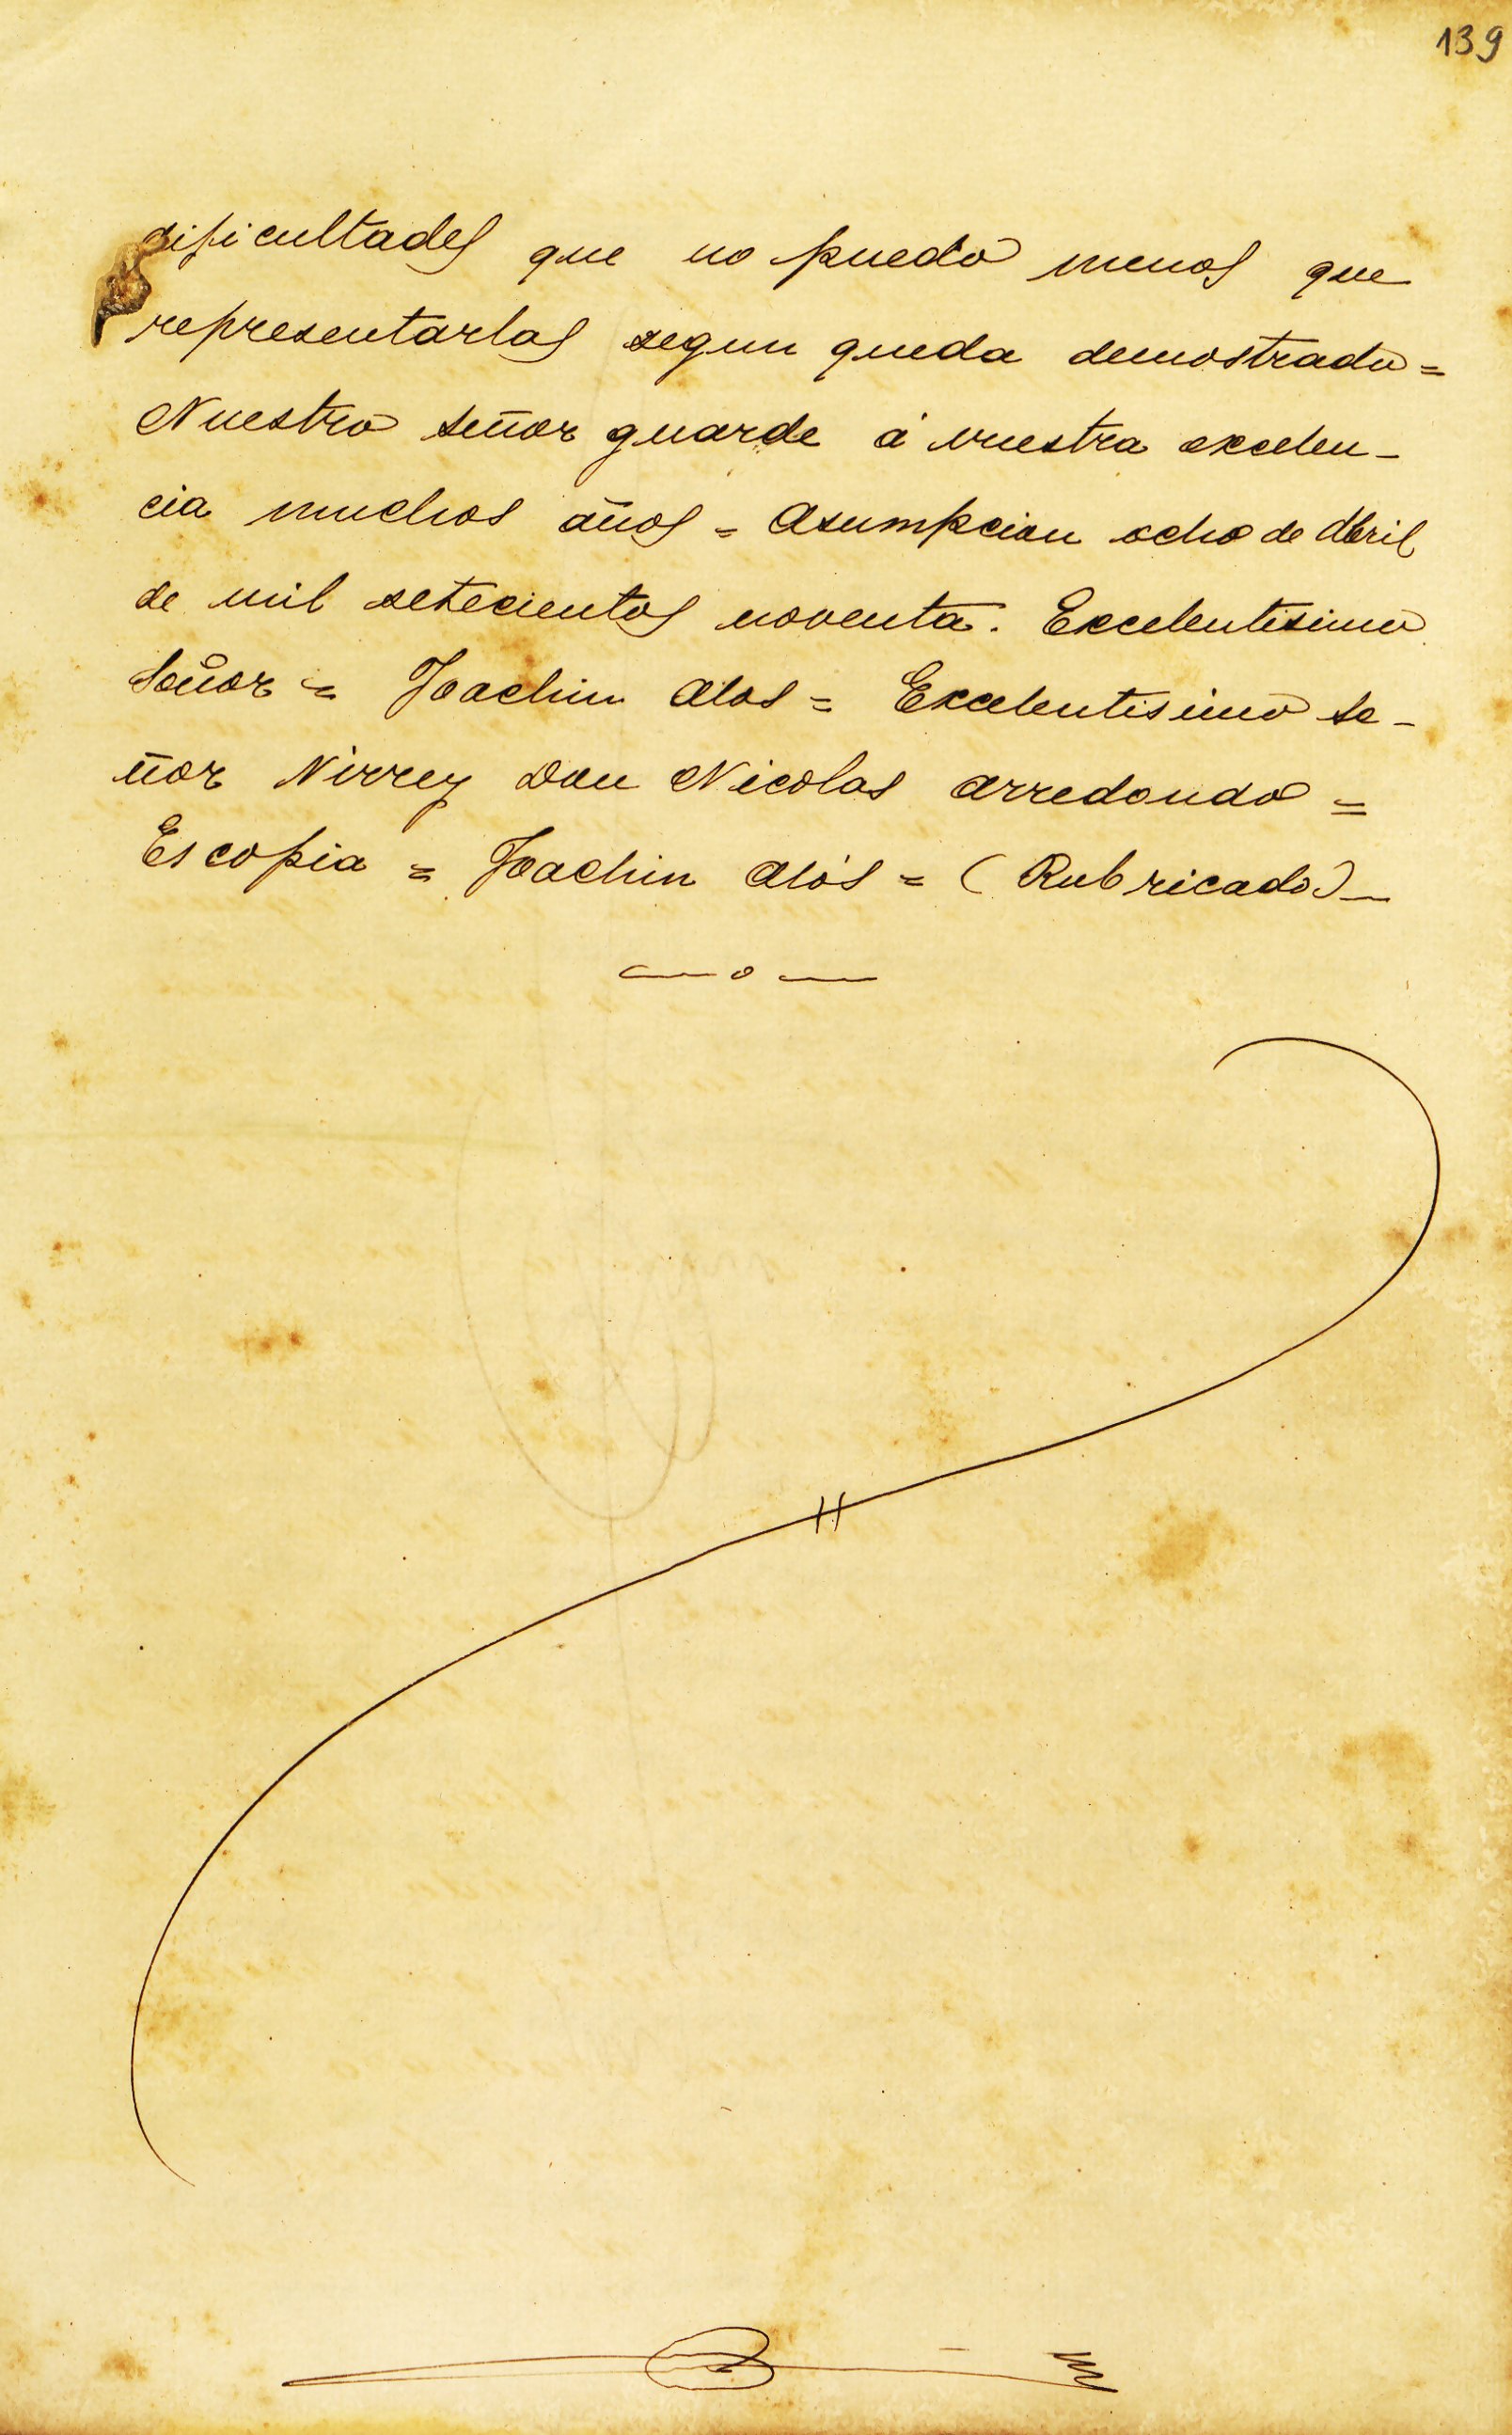 139
dificultades que no puedo menos que
representarlas segun queda demostrado=
Nuestro señor guarde á vuestra excelen-
cia muchos años = Asumpcion ocho de Abril
de mil setecientos noventa. Excelentisimo
Señor = Joachin Alos = Excelentisimo se-
ñor Virrey Don Nicolas Arredondo =
Es copia = Joachin Alós = (Rubricado)—